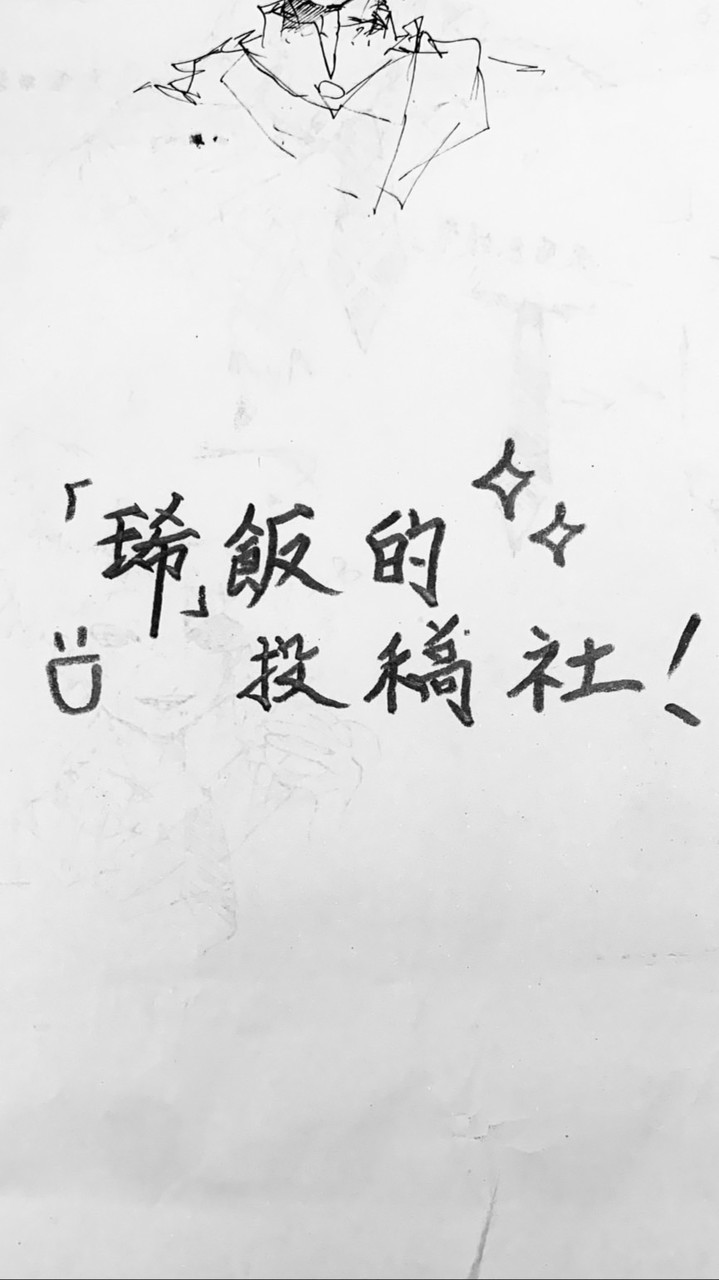 「琋」飯的
投稿社！